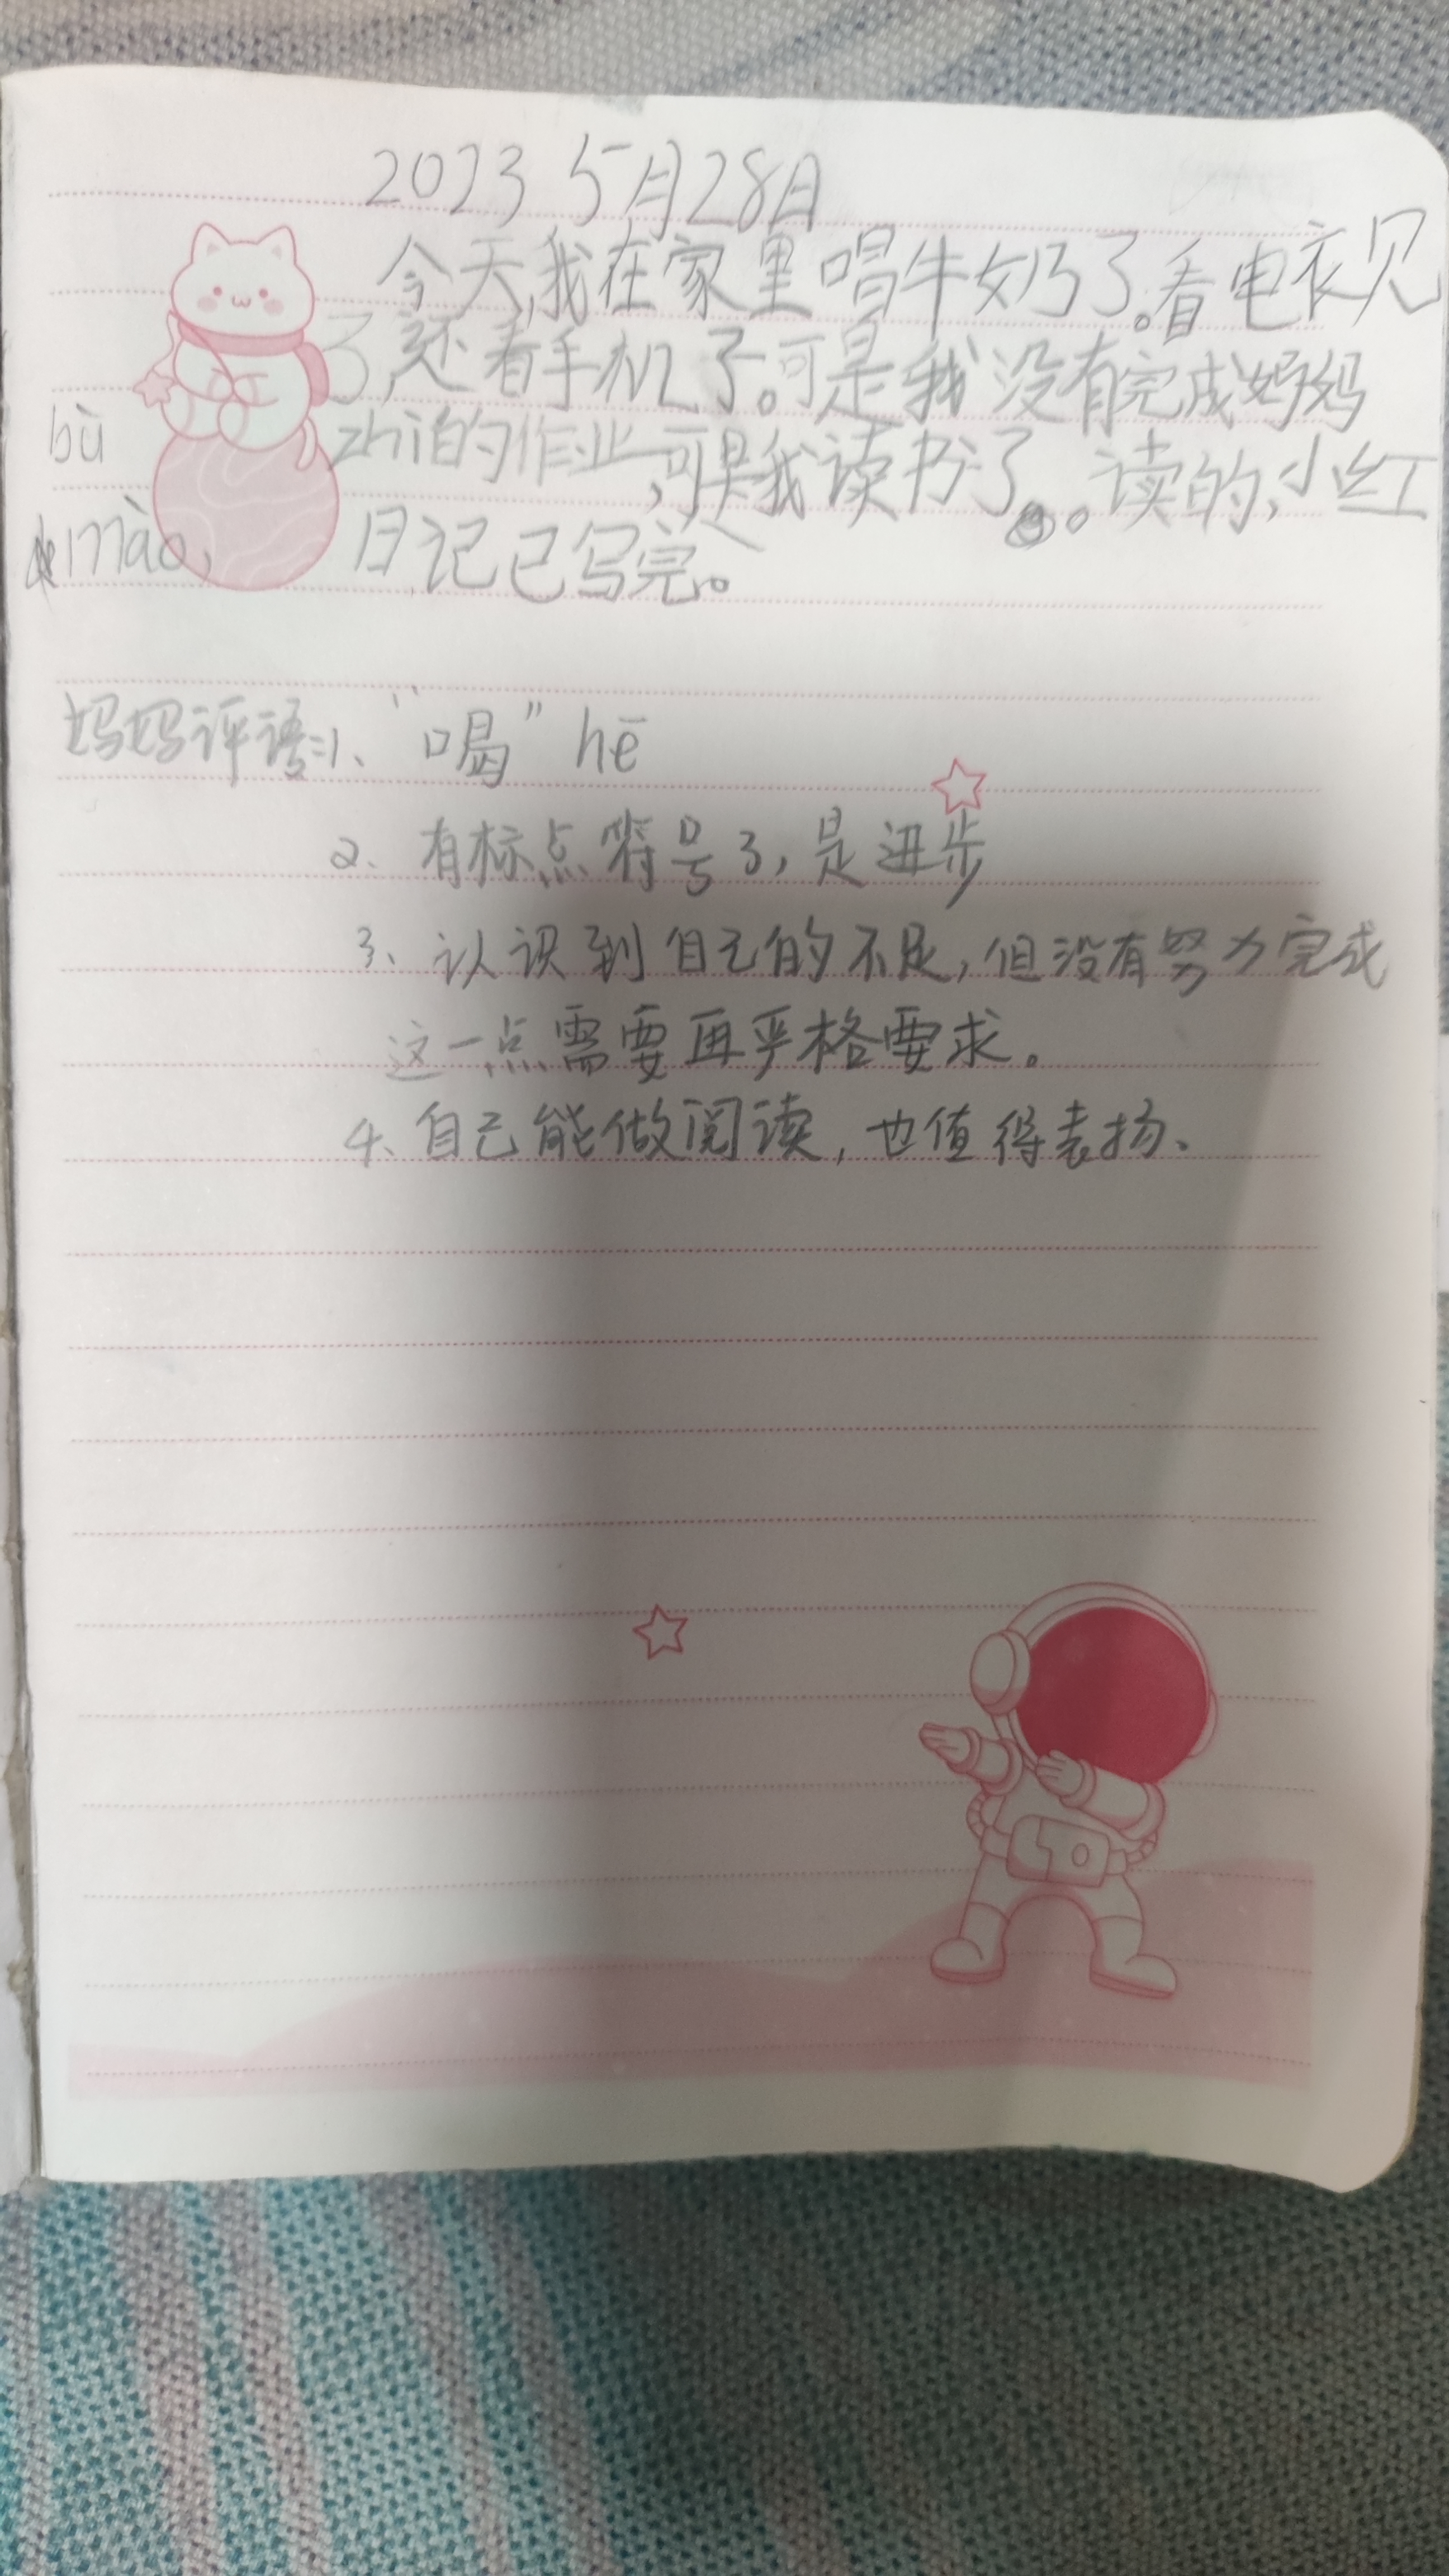 2023 5月28日
今天,我在家里唱牛奶了。看电衣见
了,还看手机了。可是我没有完成妈妈
bù zhì的作业,可是我读书了。读的,小红
mào, 日记已写完。
妈妈评语:1、“喝” hē
2、有标点符号了,是进步
3、认识到自己的不足,但没有努力完成
这一点需要再严格要求。
4、自己能做阅读,也值得表扬、